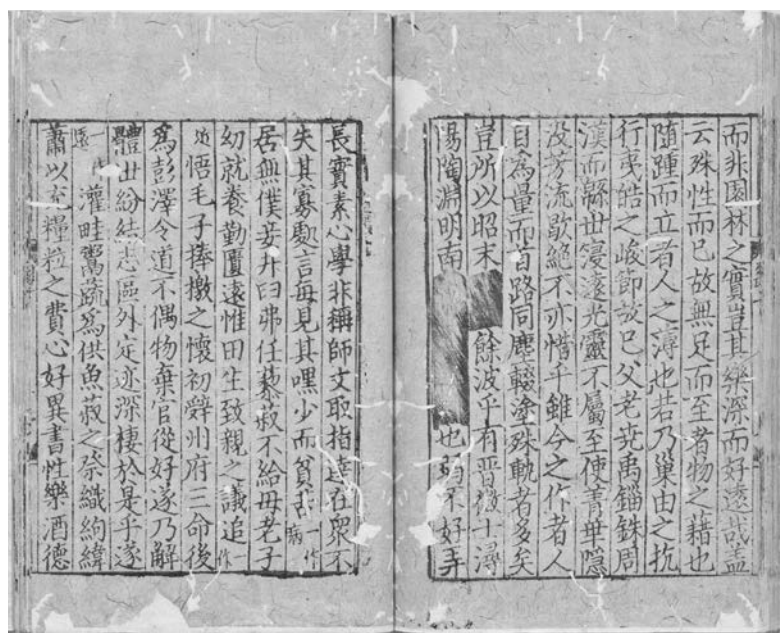 而非園林之實豈其樂深而好遠哉盖
云殊性而已故無足而至者物之藉也
随踵而立者人之薄也若乃巢由之抗
行夷皓之峻節故已父老尭禹錙銖周
漢而緜世寖遠光靈不屬至使菁華隱
没芳流歇絶不亦惜乎雖今之作者人
自為量而首路同塵輟塗殊軌者多矣
豈所以昭末餘波乎有晋徴士潯
陽陶淵明南也弱不好弄
長實素心學非稱師文取指達在衆不
失其寡處言每見其嘿少而貧苦一作病
居無僕妾井臼弗任藜菽不給母老子
幼就養勤匱遠惟田生致親之議追一作
近悟毛子捧檄之懷初辭州府三命後
爲彭澤令道不偶物棄官從好遂乃解
體世紛結志區外定迹深棲於是乎遂
一作遠灌畦鬻蔬爲供魚菽之祭織絇緯
蕭以充糧粒之費心好異書性樂酒德